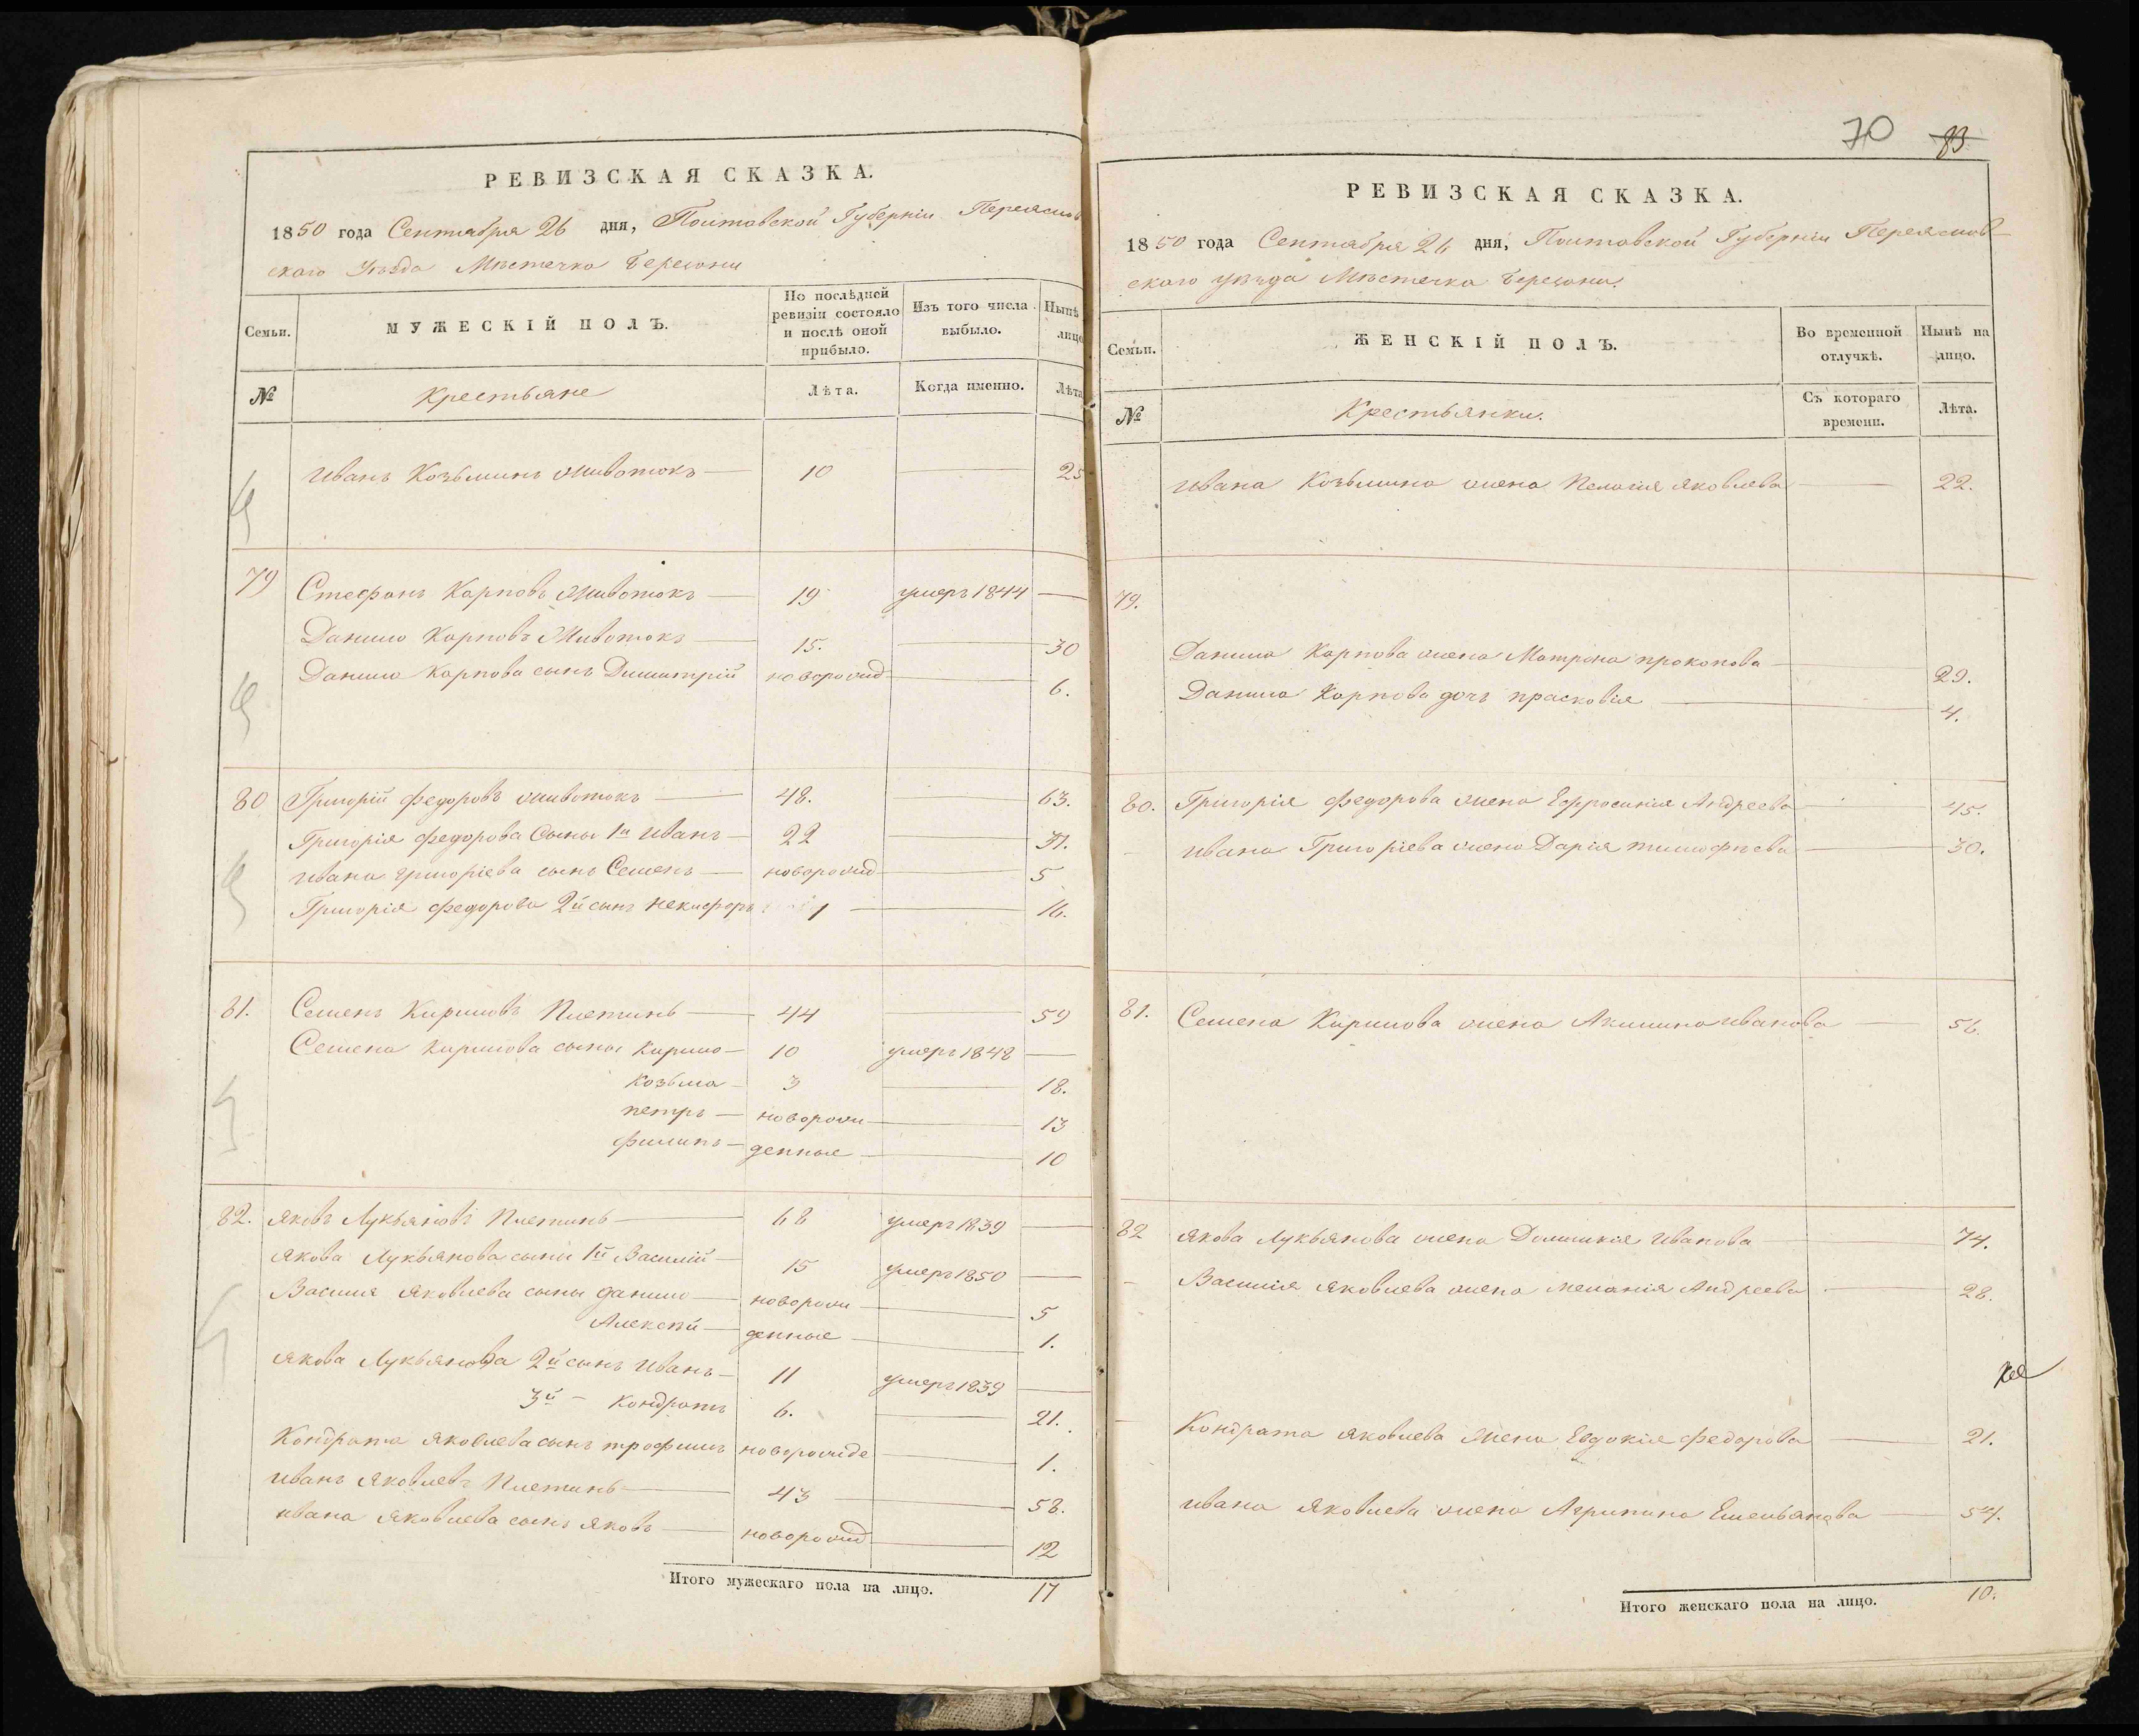 РЕВИЗСКАЯ СКАЗКА.
1850 года Сентября 26 дня, Полтавской Губерніи Переяслов
скаго Уѣзда Мѣстечка Березани
Семьи. МУЖЕСКІЙ ПОЛЪ. По послѣдней ревизіи состояло и послѣ оной прибыло. Изъ того числа выбыло. Нынѣ лицо
№ Крестьяне Лѣта. Когда именно. Лѣта
Иванъ Козьминъ Животокъ 10 25
79 Стефанъ Карповъ Животокъ 19 умеръ 1844
Данило Карповъ Животокъ 15. 30
Данило Карпова сынъ Димитрій новорожд 6.
80 Григорій Федоровъ Животокъ 48. 63.
Григорія Федорова Сыны 1й Иванъ 22 37.
Ивана Григоріева сынъ Семенъ новорожд 5
Григорія Федорова 2й сынъ Некифоръ 1 16.
81. Семенъ Кириловъ Плетинь 44 59
Семена Кирилова сыны Кирило 10 умеръ 1848
Козьма 3 18.
петръ новорож 13
филипъ денные 10
82. Яковъ Лукьяновъ Плетинь 68 умеръ 1839
Якова Лукьянова сыны 1й Василій 15 умеръ 1850
Василія Яковлева сыны данило новорож 5
Алексѣй денные 1.
Якова Лукьянова 2й сынъ Иванъ 11 умеръ 1839
3й Кондратъ 6. 21.
Кондрата Яковлева сынъ трофимъ новорожде 1.
Иванъ Яковлевъ Плетинь 43 58.
Ивана Яковлева сынъ Яковъ новорожд 12
Итого мужескаго пола на лицо. 17
70 83
РЕВИЗСКАЯ СКАЗКА.
1850 года Сентября 26 дня, Полтавской Губерніи Переяслов
скаго уѣзда Мѣстечка Березани.
Семьи. ЖЕНСКІЙ ПОЛЪ. Во временной отлучкѣ. Нынѣ на лицо.
№ Крестьянки. Съ котораго времени. Лѣта.
Ивана Козьмина жена Пелагія Яковлева 22.
79.
Данила Карпова жена Матрона прокопова 29.
Данила Карпова дочь прасковія 4.
80. Григорія Федорова жена Ефросинія Андреева 45.
Ивана Григоріева жена Дарія тимофѣева 30.
81. Семена Кирилова жена Акилина Иванова 56.
82 Якова Лукьянова жена Домникія Иванова 74.
Василія Яковлева жена меланія Андреева 28.
Кондрата Яковлева жена Евдокія Федорова 21.
Ивана Яковлева жена Агрипина Емельянова 54.
Итого женскаго пола на лицо. 10.